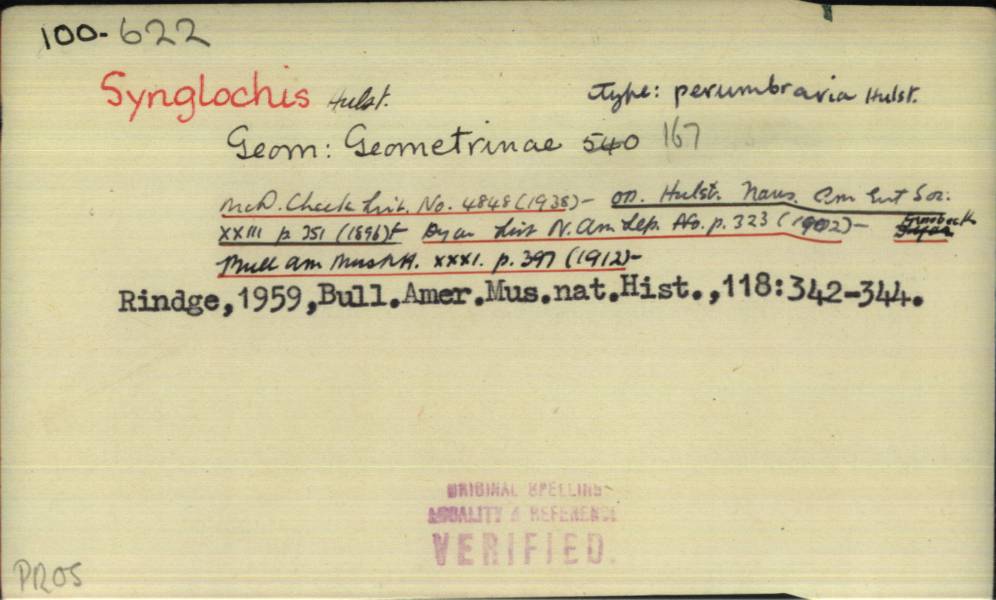 100-622
Synglochis Hulst. type: perumbraria Hulst.
Geom: Geometrinae 540 167
McD. Check List. No. 4848 (1938)- OD. Hulst. Trans. Am Ent Soc.
XXIII p. 351 (1896)+ Dyar List N. Am Lep. No. p. 323 (1902)- Grossbeck
Bull Am Mus NH. XXXI. p. 397 (1912)-
Rindge,1959,Bull.Amer.Mus.nat.Hist.,118:342-344.
ORIGINAL SPELLING
LOCALITY & REFERENCE
VERIFIED.
PROS